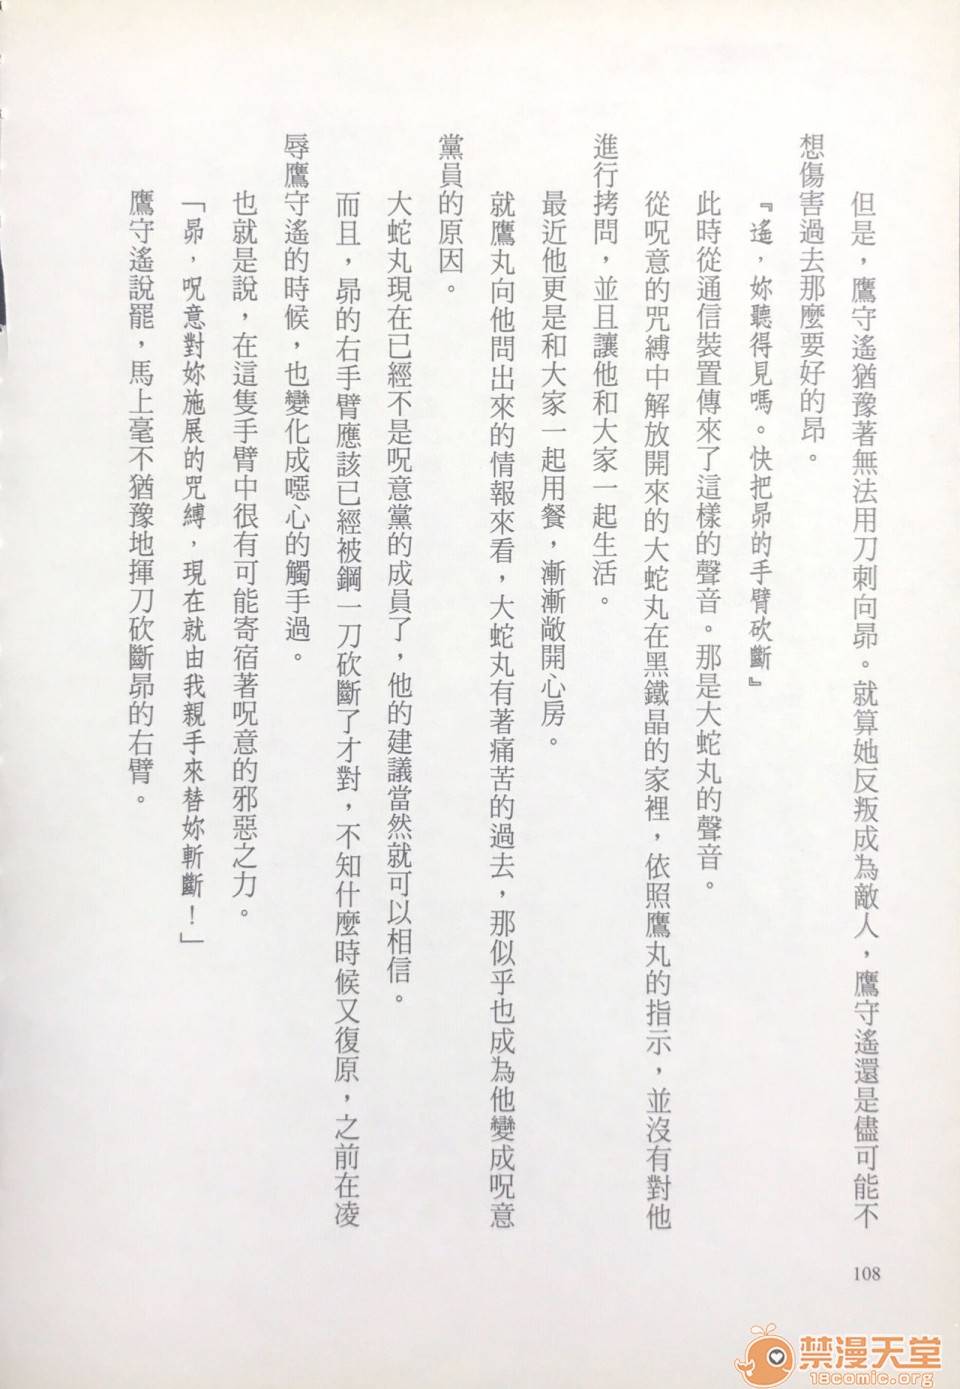 但是，鷹守遙猶豫著無法用刀刺向昴。就算她反叛成為敵人，鷹守遙還是儘可能不
想傷害過去那麼要好的昴。
『遙，妳聽得見嗎。快把昴的手臂砍斷』
此時從通信裝置傳來了這樣的聲音。那是大蛇丸的聲音。
從呪意的咒縛中解放開來的大蛇丸在黑鐵晶的家裡，依照鷹丸的指示，並沒有對他
進行拷問，並且讓他和大家一起生活。
最近他更是和大家一起用餐，漸漸敞開心房。
就鷹丸向他問出來的情報來看，大蛇丸有著痛苦的過去，那似乎也成為他變成呪意
黨員的原因。
大蛇丸現在已經不是呪意黨的成員了，他的建議當然就可以相信。
而且，昴的右手臂應該已經被鋼一刀砍斷了才對，不知什麼時候又復原，之前在凌
辱鷹守遙的時候，也變化成噁心的觸手過。
也就是說，在這隻手臂中很有可能寄宿著呪意的邪惡之力。
「昴，呪意對妳施展的咒縛，現在就由我親手來替妳斬斷！」
鷹守遙說罷，馬上毫不猶豫地揮刀砍斷昴的右臂。
108
禁漫天堂
18comic.org